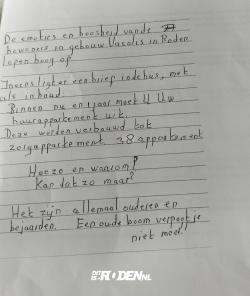 De emoties en boosheid vande
bewoners in gebouw Vasalis in Roden
lopen hoog op
Ineens ligt er een brief inde bus, met
als inhoud
Binnen nu en 1 jaar moet U Uw
huurappartement uit.
Deze worden verbouwd tot
zorgappartement. 38 appartement
Hoezo en waarom?
Kan dat zo maar?
Het zijn allemaal ouderen en
bejaarden. Een oude boom verpoot je
niet meer!
DIT IS RODEN.NL